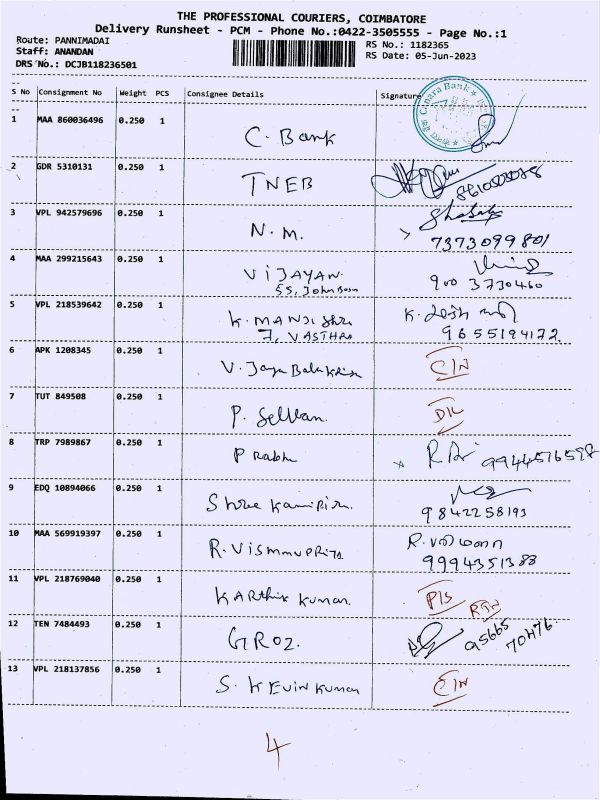 THE PROFESSIONAL COURIERS, COIMBATORE
Delivery Runsheet - PCM - Phone No.:0422-3505555 - Page No.:1
Route: PANNIMADAI
Staff: ANANDAN
DRS No.: DCJB118236501
RS No.: 1182365
RS Date: 05-Jun-2023
S No Consignment No Weight PCS Consignee Details Signature
Canara Bank
1 MAA 860036496 0.250 1 C. Bank
2 GDR 5310131 0.250 1 TNEB
3 VPL 942579696 0.250 1 N.M.
7373099801
4 MAA 299215643 0.250 1 VIJAYAN
55, John
900 3730460
5 VPL 218539642 0.250 1 K. MANJI Shre
7, VASTHRA
9655194172
6 APK 1208345 0.250 1 V. Jaya Bala C/N
7 TUT 849508 0.250 1 P. Selvan DL
8 TRP 7989867 0.250 1 Prabhu
9944576598
9 EDQ 10894066 0.250 1 Shree
9842258193
10 MAA 569919397 0.250 1 R. VISHNUPRIYA
9994351388
11 VPL 218769040 0.250 1 KARthik Kumar P/S RTN
12 TEN 7484493 0.250 1 GROZ. 95665
70476
13 VPL 218137856 0.250 1 S. KEVIN Kumar C/N
4